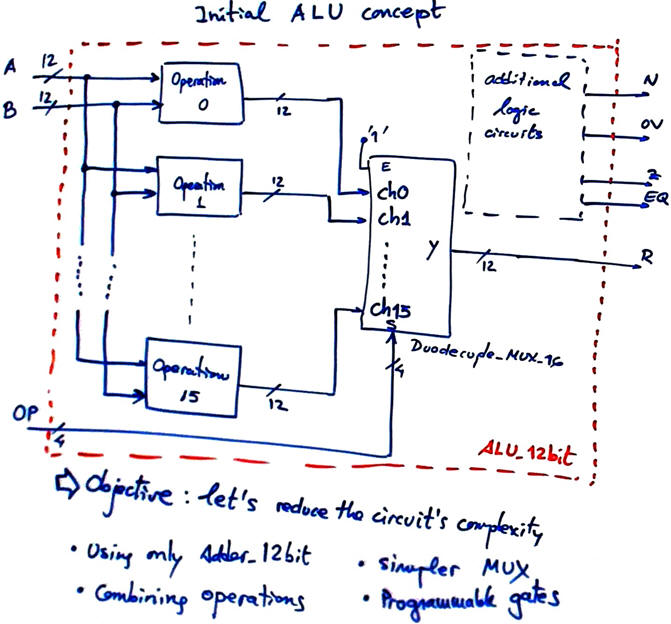 Initial ALU concept
A 12
B 12
Operation 0
12
Operation 1
12
Operation 15
12
'1'
E
ch0
ch1
ch15
S
Y
12
4
Duodecuple_MUX_16
additional logic circuits
N
OV
Z
EQ
R
OP 4
ALU_12bit
⇨ Objective : let's reduce the circuit's complexity
• Using only Adder_12bit
• simpler MUX
• Combining operations
• Programmable gates